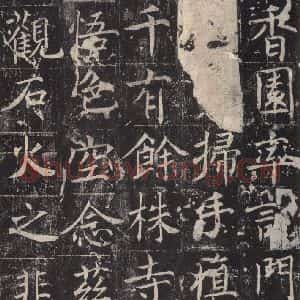 香園率門
掃手植
千有餘株寺
悟色空念茲
觀石火之非